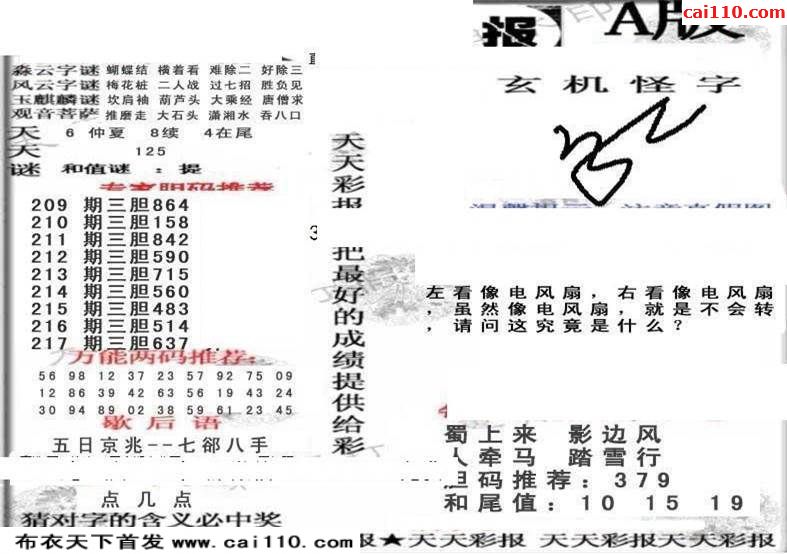 cai110.com
报 A版
淼云字谜 蝴蝶结 横着看 难除二 好除三
风云字谜 梅花桩 二人战 过七招 胜负见
玉麒麟谜 坎肩袖 葫芦头 大乘经 唐僧求
观音菩萨 推磨走 大石头 潇湘水 吞八口
天 6 仲夏 8续 4在尾
天 125
谜 和值谜 : 提
专家胆码推荐
209 期三胆864
210 期三胆158
211 期三胆842
212 期三胆590
213 期三胆715
214 期三胆560
215 期三胆483
216 期三胆514
217 期三胆637
万能两码推荐:
56 98 12 37 23 57 92 75 09
12 86 39 42 63 56 19 43 24
30 94 89 02 38 59 61 23 45
歇后语
五日京兆--七郤八手
点几点
猜对字的含义必中奖
布衣天下首发 www.cai110.com
天天彩报
把最好的成绩提供给彩
玄机怪字
左看像电风扇，右看像电风扇
，虽然像电风扇，就是不会转
，请问这究竟是什么？
蜀上来 影边风
人牵马 踏雪行
胆码推荐: 379
和尾值: 10 15 19
报★天天彩报 天天彩报天天彩报